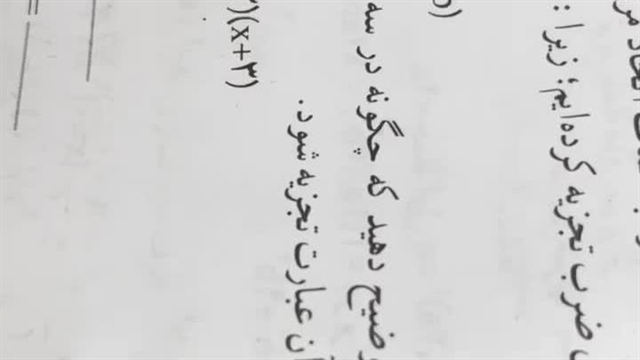 اتحاد
ضرب تجزیه کرده‌ایم؛ زیرا :
b)
ضیح دهید که چگونه در سه
ن عبارت تجزیه شود.
)(x+۳)
=